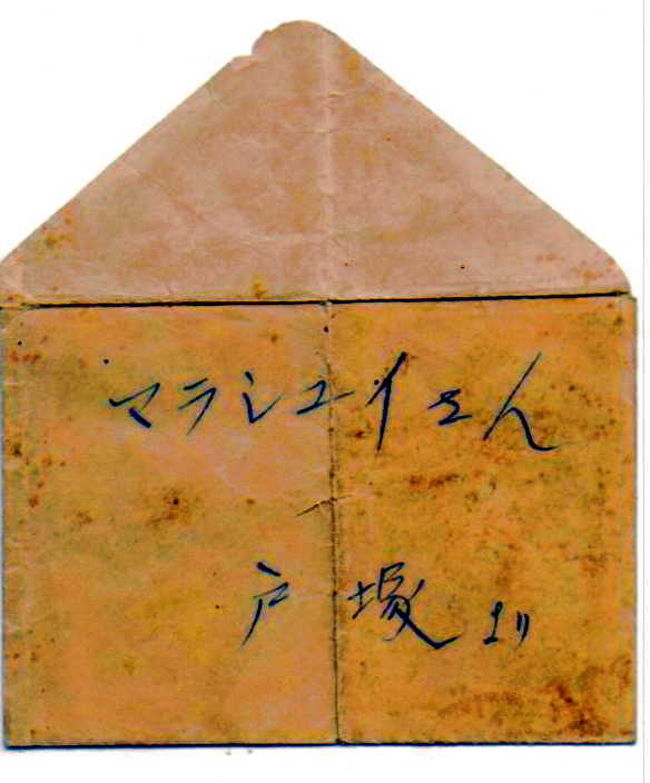 マラシユイさん
戸塚より